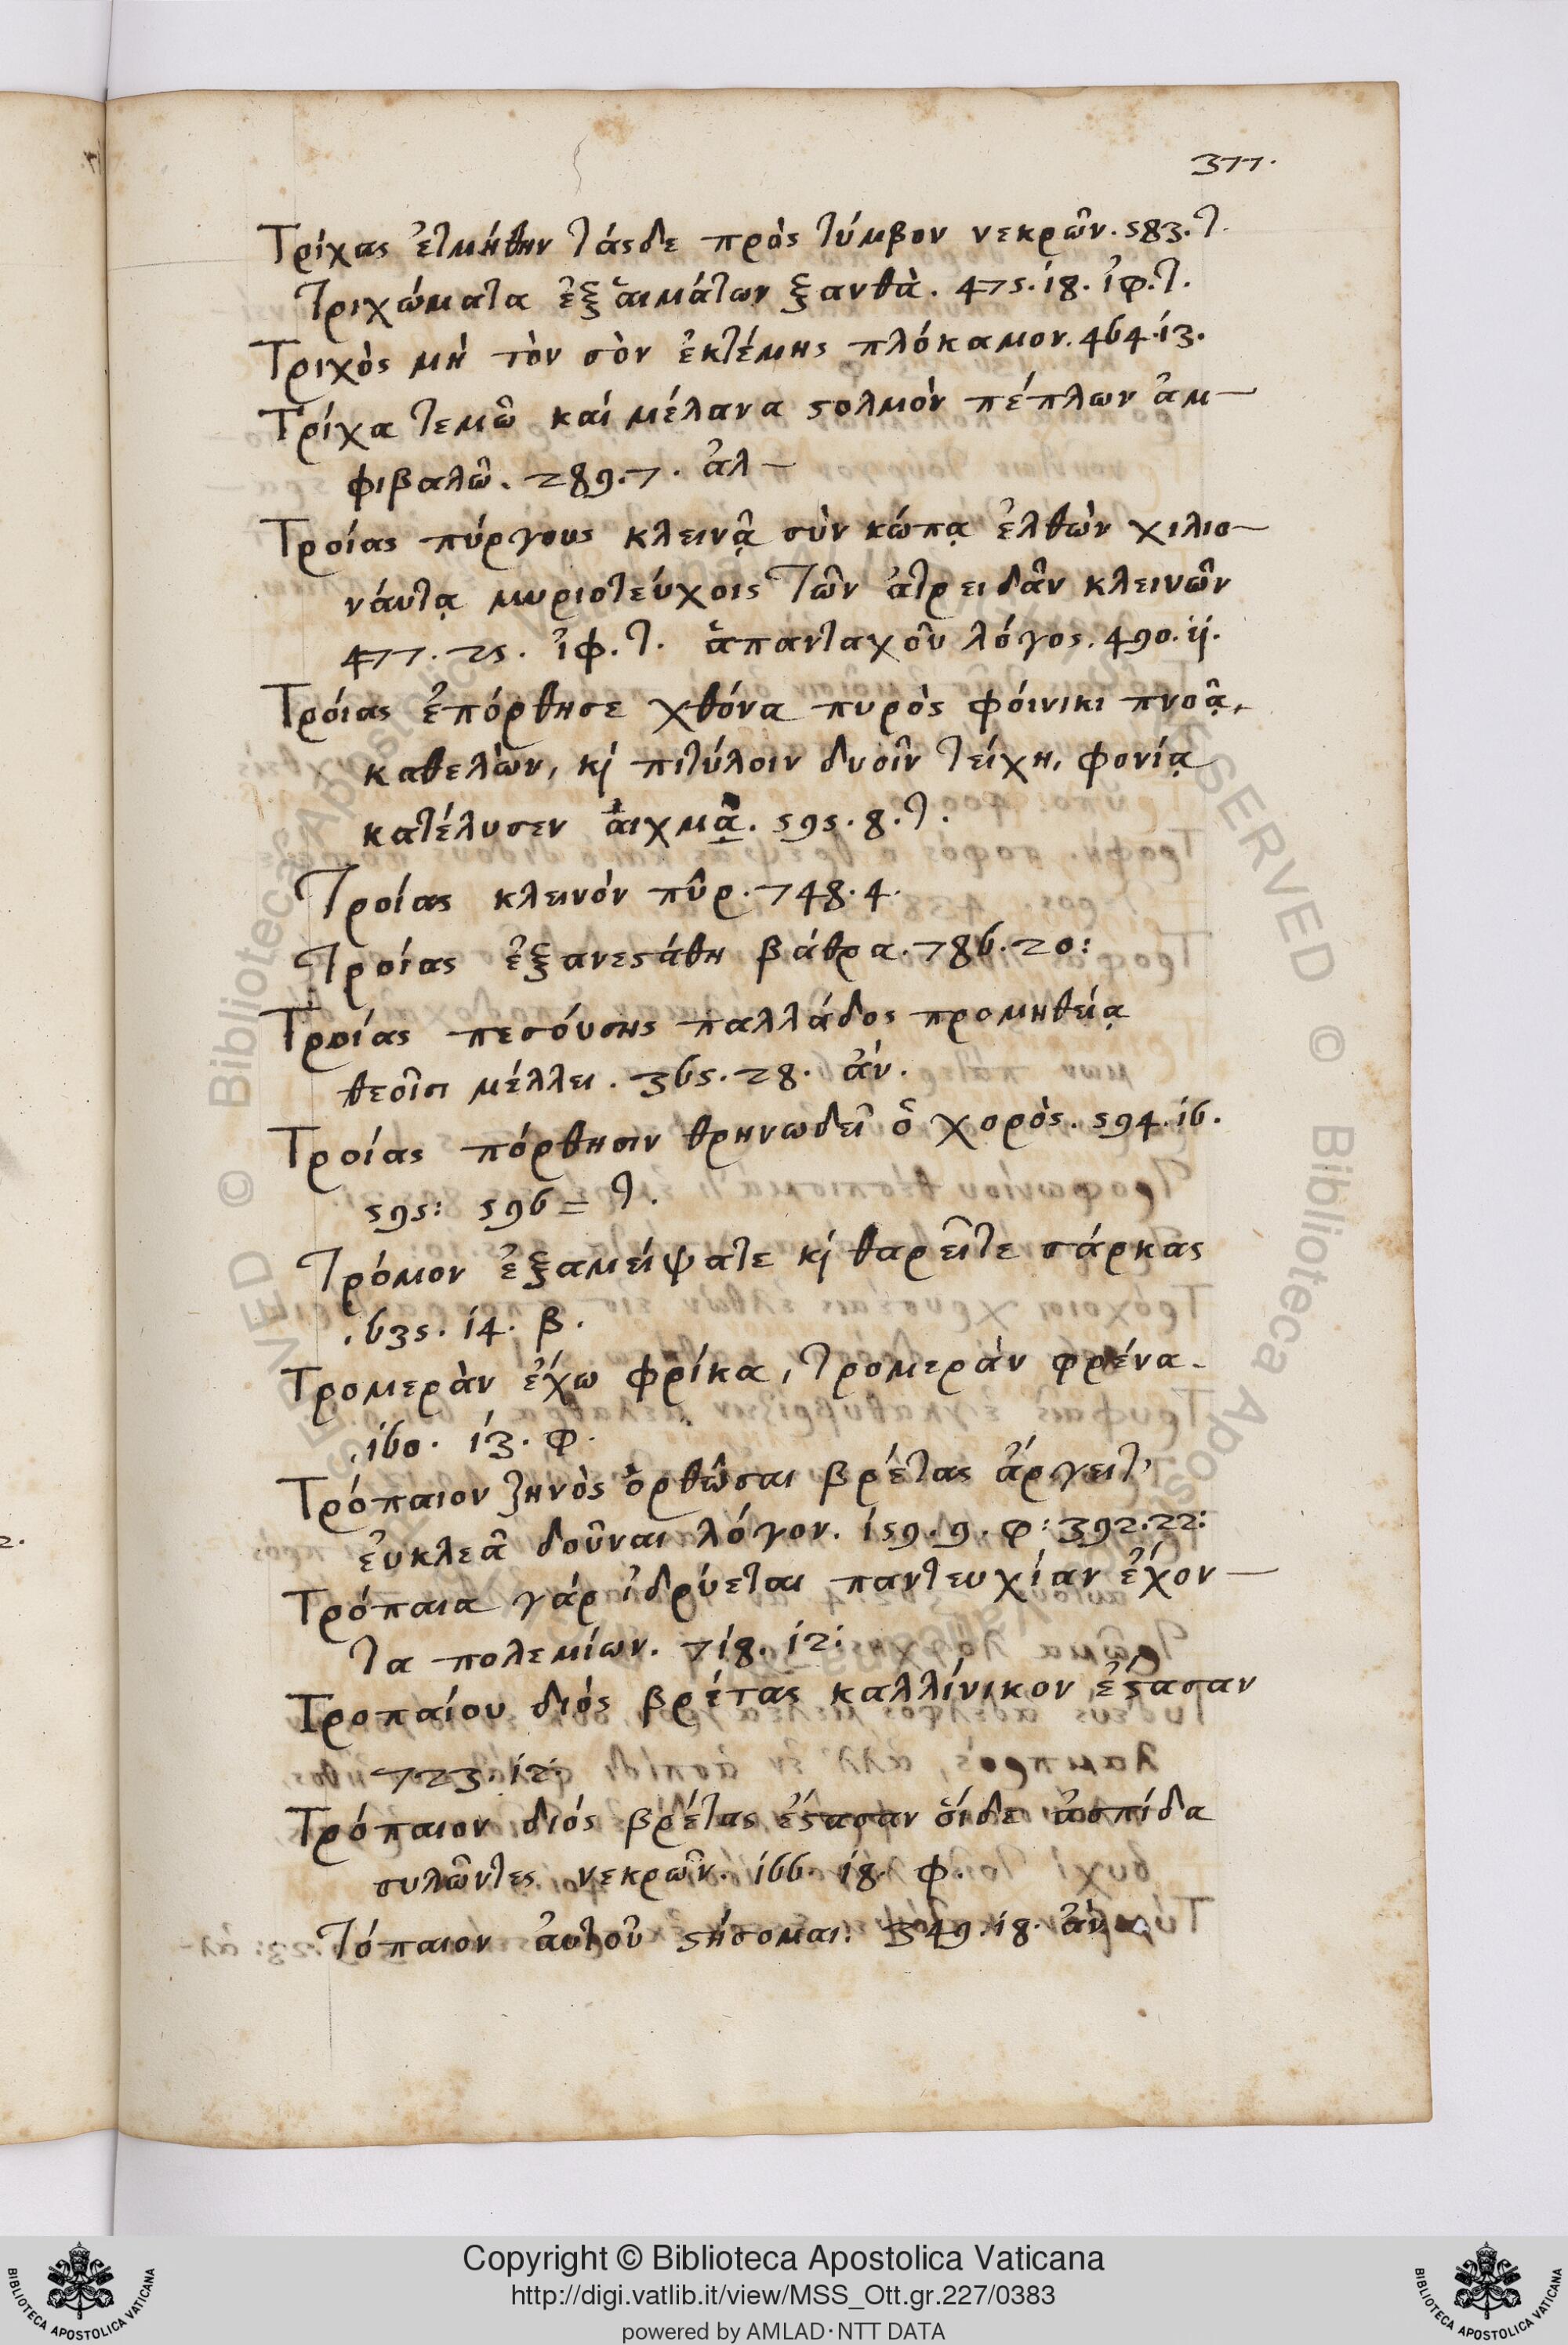 377.
Τρίχας ἐτμήθην τάςδε πρὸς τύμβον νεκρῶν. 583. τ.
Τριχώματα ἐξ ἁιμάτων ξανθὰ. 475. 18. ἰφ. τ.
Τριχὸς μὴ τὸν σὸν ἐκτέμης πλόκαμον. 464. 13.
Τρίχα τεμῶ καί μέλανα ϛολμὸν πέπλων ἀμ-
φιβαλῶ. 289. 7. ἀλ-
Τροίας πύργους κλεινᾷ σὺν κώπᾳ ἐλθὼν χιλιο-
νάυτᾳ μυριοτεύχοις τῶν ἀτρειδᾶν κλεινῶν
477. 25. ἰφ. τ. ἁπανταχοῦ λόγος. 490. 11.
Τρόιας ἐπόρθησε χθόνα πυρὸς φόινικι πνοᾷ,
καθελὼν, κὶ πιτύλοιν δυοῖν τείχη, φονίᾳ
κατέλυσεν ἀιχμᾷ. 595. 8. τ.
Τροίας κλεινὸν πῦρ. 748. 4.
Τροίας ἐξανεϛάθη βάθρα. 786. 20:
Τροίας πεσόυσης παλλάδος προμηθείᾳ
θεοῖσι μέλλει. 365. 28. ἀν.
Τροίας πόρθησιν θρηνωδεῖ ὁ χορὸς. 594. 16.
595: 596 = τ.
Τρόμον ἐξαμείψατε κὶ θαρεῖτε σάρκας
. 635. 14. β.
Τρομερὰν ἔχω φρίκα, τρομερὰν φρένα.
. 160. 13. φ.
Τρόπαιον ζηνὸς ὀρθῶσαι βρέτας ἄργειτ'
ἐυκλεᾶ δοῦναι λόγον. 159. 9. φ: 392. 22:
Τρόπαια γάρ ἱδρύεται παντευχίαν ἔχον-
τα πολεμίων. 718. 12:
Τροπαίου διός βρέτας καλλίνικον ἔϛασαν
723. 12:
Τρόπαιον διός βρέτας ἔϛασαν ὅιδε ἀσπίδα
συλῶντες νεκρῶν. 166. 18. φ.
Τόπαιον ἀυτοῦ ϛήσομαι. 349. 18. ἀν
Copyright © Biblioteca Apostolica Vaticana
http://digi.vatlib.it/view/MSS_Ott.gr.227/0383
powered by AMLAD·NTT DATA